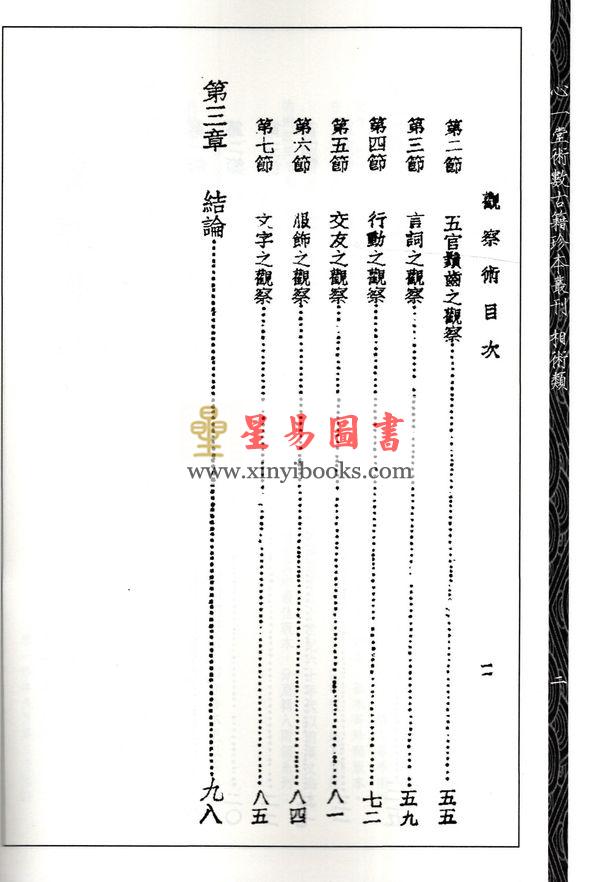 心一堂術數古籍珍本叢刊 相術類
二
觀察術目次
二
第二節 五官鬚齒之觀察 五五
第三節 言詞之觀察 五九
第四節 行動之觀察 七二
第五節 交友之觀察 八一
第六節 服飾之觀察 八四
第七節 文字之觀察 八五
第三章 結論 九八
星易圖書
www.xinyibooks.com